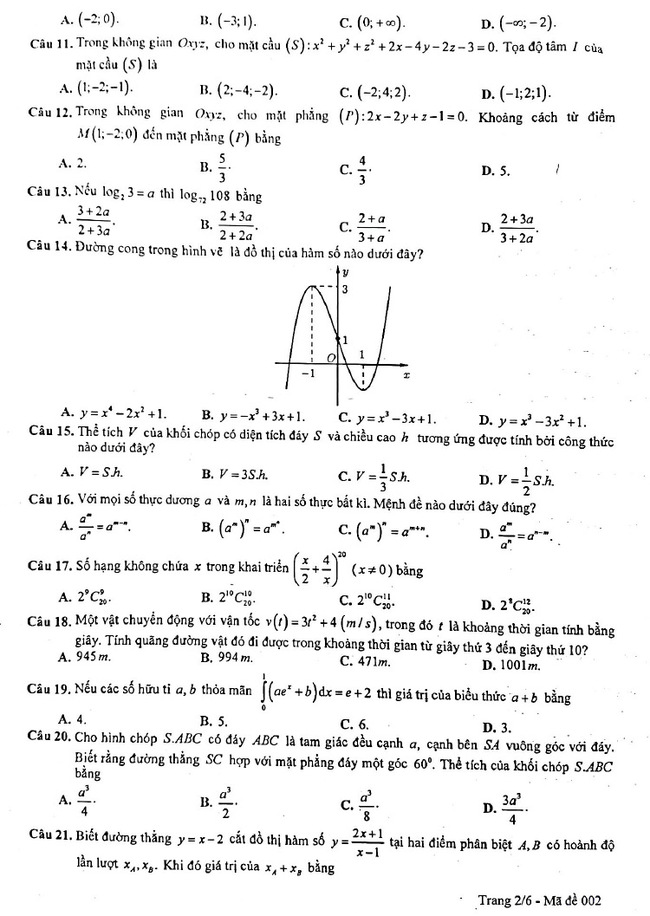 A. (−2;0). B. (−3;1). C. (0;+∞). D. (−∞;−2).
Câu 11. Trong không gian Oxyz, cho mặt cầu (S): x² + y² + z² + 2x − 4y − 2z − 3 = 0. Tọa độ tâm I của
mặt cầu (S) là
A. (1;−2;−1). B. (2;−4;−2). C. (−2;4;2). D. (−1;2;1).
Câu 12. Trong không gian Oxyz, cho mặt phẳng (P): 2x − 2y + z − 1 = 0. Khoảng cách từ điểm
M(1;−2;0) đến mặt phẳng (P) bằng
A. 2. B. 5/3. C. 4/3. D. 5.
Câu 13. Nếu log₂ 3 = a thì log₇₂ 108 bằng
A. (3+2a)/(2+3a). B. (2+3a)/(2+2a). C. (2+a)/(3+a). D. (2+3a)/(3+2a).
Câu 14. Đường cong trong hình vẽ là đồ thị của hàm số nào dưới đây?
y
3
1
O 1
−1 x
A. y = x⁴ − 2x² + 1. B. y = −x³ + 3x + 1. C. y = x³ − 3x + 1. D. y = x³ − 3x² + 1.
Câu 15. Thể tích V của khối chóp có diện tích đáy S và chiều cao h tương ứng được tính bởi công thức
nào dưới đây?
A. V = S.h. B. V = 3S.h. C. V = 1/3 S.h. D. V = 1/2 S.h.
Câu 16. Với mọi số thực dương a và m, n là hai số thực bất kì. Mệnh đề nào dưới đây đúng?
A. aᵐ/aⁿ = aᵐ⁻ⁿ. B. (aᵐ)ⁿ = a^(mⁿ). C. (aᵐ)ⁿ = aᵐ⁺ⁿ. D. aᵐ/aⁿ = aⁿ⁻ᵐ.
Câu 17. Số hạng không chứa x trong khai triển (x/2 + 4/x)²⁰ (x ≠ 0) bằng
A. 2⁹C₂₀⁹. B. 2¹⁰C₂₀¹⁰. C. 2¹⁰C₂₀¹¹. D. 2⁸C₂₀¹².
Câu 18. Một vật chuyển động với vận tốc v(t) = 3t² + 4 (m/s), trong đó t là khoảng thời gian tính bằng
giây. Tính quãng đường vật đó đi được trong khoảng thời gian từ giây thứ 3 đến giây thứ 10?
A. 945m. B. 994m. C. 471m. D. 1001m.
Câu 19. Nếu các số hữu tỉ a, b thỏa mãn ∫₀¹(aeˣ + b)dx = e + 2 thì giá trị của biểu thức a + b bằng
A. 4. B. 5. C. 6. D. 3.
Câu 20. Cho hình chóp S.ABC có đáy ABC là tam giác đều cạnh a, cạnh bên SA vuông góc với đáy.
Biết rằng đường thẳng SC hợp với mặt phẳng đáy một góc 60⁰. Thể tích của khối chóp S.ABC
bằng
A. a³/4. B. a³/2. C. a³/8. D. 3a³/4.
Câu 21. Biết đường thẳng y = x − 2 cắt đồ thị hàm số y = (2x+1)/(x−1) tại hai điểm phân biệt A, B có hoành độ
lần lượt x_A, x_B. Khi đó giá trị của x_A + x_B bằng
Trang 2/6 - Mã đề 002